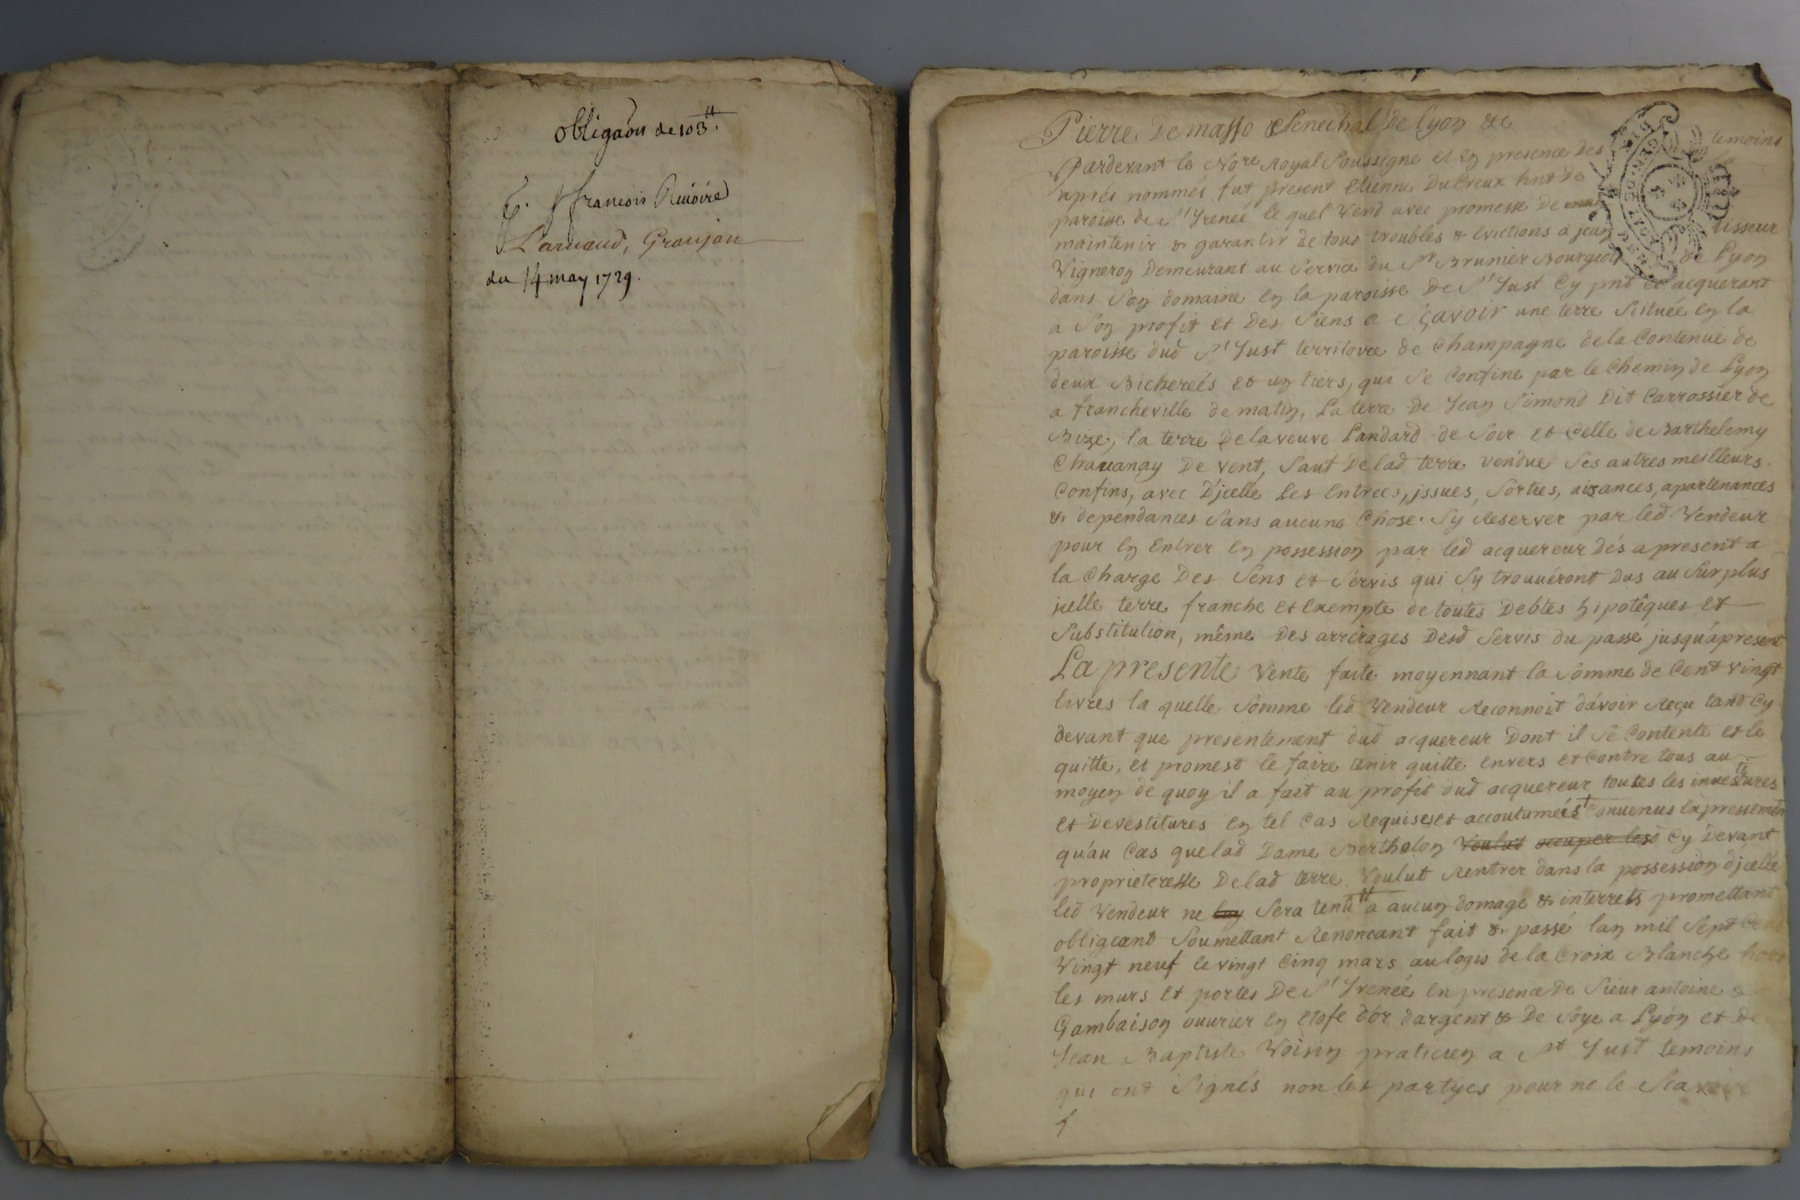 obligaôn de 103 ₶.
françois Rivoire
Larnaud, Granjon
du 14 may 1729.
Pierre De masso Senechal de Lyon &c
Parderant le No.re Royal Soussigne et en presence Des temoins
aprés nommés fut present Etienne DuCreux de
paroisse de St Irenée le quel Vend avec promesse De
maintenir & garantir de tous troubles & Evictions a jean tisseur
Vigneron Demeurant au Service du Sr Brunier Bourgeois de Lyon
dans Son domaine En la paroisse De St Just Cy pnt et acquerant
a Son profit et des Siens a Sçavoir une terre Scituée En la
paroisse dud St Just territoire de Champagne de la Contenue de
deux Bichereés et un tiers, qui Se Confine par le Chemin de Lyon
a francheville de matin, La terre De Jean Simond Dit Carrossier de
Bize, la terre De la veuve Landard de Soir et Celle de Barthelemy
Chavanay De vent, Sauf De lad terre vendue Ses autres meilleurs
Confins, avec D'jcelle Les Entrees, jssues, Sorties, aizances, apartenances
& dependances Sans aucune Chose Sy Reserver par led Vendeur
pour En Entrer En possession par led acquereur dés apresent a
la Charge Des Sens et Servis qui Sy trouuéront dus au Surplus
jcelle terre franche et Exempte de toutes Debtes hipotêques et
Substitution, même Des arrérages Desd Servis du passe jusqu'apresent
La presente Vente faite moyennant la Somme de Cent vingt
livres la quelle Somme led Vendeur Reconnoit d'avoir Reçu tand Cy
devant que presentement dud acquereur Dont il Se Contente et le
quitte, et promest le faire tenir quitte Envers et Contre tous au
moyen de quoy il a fait au profit dud acquereur toutes les investitures
et Devestitures En tel Cas Requises et accoutumées Conuenus Expressement
qu'au Cas que lad Dame Bertholon Voulut occuper Cy Devant
proprieteresse De lad terre Voulut Rentrer dans la possession djcelle
led Vendeur ne Sera tenu a aucun domage & interrets promettant
obligeant Soumettant Renoncant fait & passé lan mil Sept Cent
Vingt neuf le vingt Cinq mars au logis de la Croix Blanche hors
les murs et portes De St Irenée En presence De Sieur antoine
Gambaison ouurier En Etofe d'or dargent & De Soye a Lyon et de
Jean Baptiste Voisin praticien a St Just temoins
qui ont Signés non les partyes pour ne le Scavoir